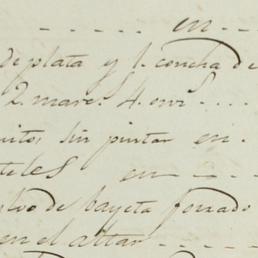 en
de plata y 1. concha de
2. marcs. 4. onz
sin pintar en
en
de bayeta forrado
en el altar